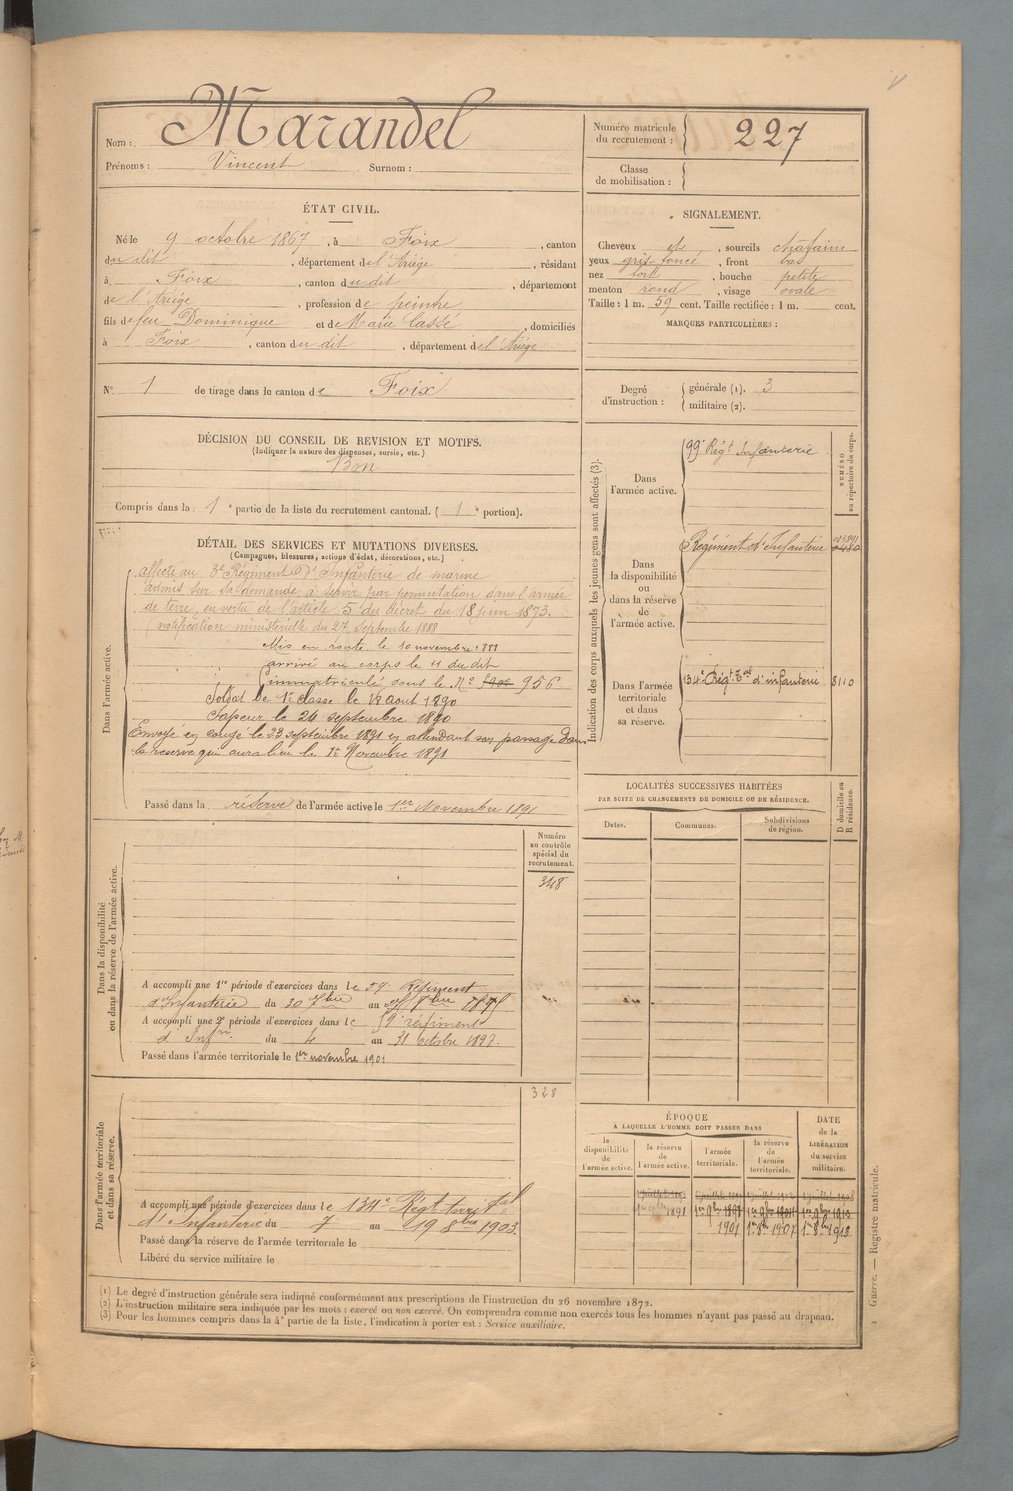 Nom : Marandel
Prénoms : Vincent Surnom :
Numéro matricule du recrutement : 227
Classe de mobilisation :
ÉTAT CIVIL.
Né le 9 octobre 1867, à Foix, canton
du dit, département de l'Ariège, résidant
à Foix, canton du dit, département
de l'Ariège, profession de peintre
fils de feu Dominique et de Marie Cassé, domiciliés
à Foix, canton du dit, département de l'Ariège
N° 1 de tirage dans le canton de Foix
SIGNALEMENT.
Cheveux et, sourcils chatains
yeux gris foncé, front bas
nez fort, bouche petite
menton rond, visage ovale
Taille : 1 m. 59 cent. Taille rectifiée : 1 m. cent.
MARQUES PARTICULIÈRES :
Degré d'instruction : générale (1). 3
militaire (2).
DÉCISION DU CONSEIL DE REVISION ET MOTIFS.
(Indiquer la nature des dispenses, sursis, etc.)
Bon
Compris dans la 1e partie de la liste du recrutement cantonal. (1e portion).
DÉTAIL DES SERVICES ET MUTATIONS DIVERSES.
(Campagnes, blessures, actions d'éclat, décorations, etc.)
Dans l'armée active.
affecté au 3e Régiment d'Infanterie de marine
admis sur sa demande à servir par permutation dans l'armée
de terre, en vertu de l'article 5 du décret du 18 juin 1873.
(notification ministérielle du 27 septembre 1888
Mis en route le 10 novembre 1888
arrivé au corps le 11 du dit
immatriculé sous le N° 956
Soldat de 1e classe le 12 Aout 1890
Sapeur le 24 septembre 1890
Envoyé en congé le 23 septembre 1891 en attendant son passage dans
la réserve qui aura lieu le 1er Novembre 1891
Passé dans la réserve de l'armée active le 1er Novembre 1891
Indication des corps auxquels les jeunes gens sont affectés (3).
NUMÉRO au répertoire du corps.
Dans l'armée active.
99e Régt Infanterie
Dans la disponibilité ou dans la réserve de l'armée active.
Régiment d'Infanterie
Dans l'armée territoriale et dans sa réserve.
134e Régt Tal d'infanterie 8110
LOCALITÉS SUCCESSIVES HABITÉES
PAR SUITE DE CHANGEMENTS DE DOMICILE OU DE RÉSIDENCE.
Dates. Communes. Subdivisions de région. D domicile ou R résidence.
Dans la disponibilité ou dans la réserve de l'armée active.
Numéro au contrôle spécial du recrutement.
348
A accompli une 1re période d'exercices dans le 59 Régiment
d'Infanterie du 30 7bre au 8bre
A accompli une 2e période d'exercices dans le 59e régiment
d'Infrie du 4 au 31 octobre
Passé dans l'armée territoriale le 1er novembre 1901
328
Dans l'armée territoriale et dans sa réserve.
A accompli une période d'exercices dans le 134e Régt territal
d'Infanterie du 7 au 19 8bre 1903.
Passé dans la réserve de l'armée territoriale le
Libéré du service militaire le
ÉPOQUE
A LAQUELLE L'HOMME DOIT PASSER DANS
la disponibilité de l'armée active.
la réserve de l'armée active.
l'armée territoriale.
la réserve de l'armée territoriale.
DATE de la LIBÉRATION du service militaire.
1er 9bre 1891
1901
(1) Le degré d'instruction générale sera indiqué conformément aux prescriptions de l'instruction du 26 novembre 1872.
(2) L'instruction militaire sera indiquée par les mots : exercé ou non exercé. On comprendra comme non exercés tous les hommes n'ayant pas passé au drapeau.
(3) Pour les hommes compris dans la 4e partie de la liste, l'indication à porter est : Service auxiliaire.
Guerre. — Registre matricule.